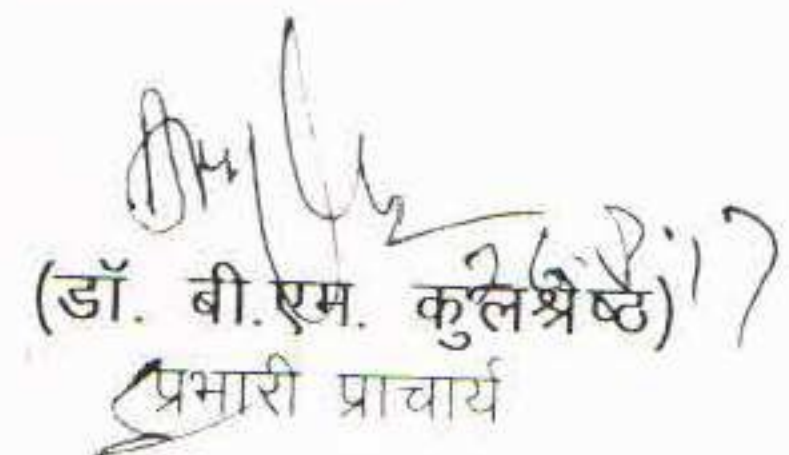 (डॉ. बी.एम. कुलश्रेष्ठ)
प्रभारी प्राचार्य